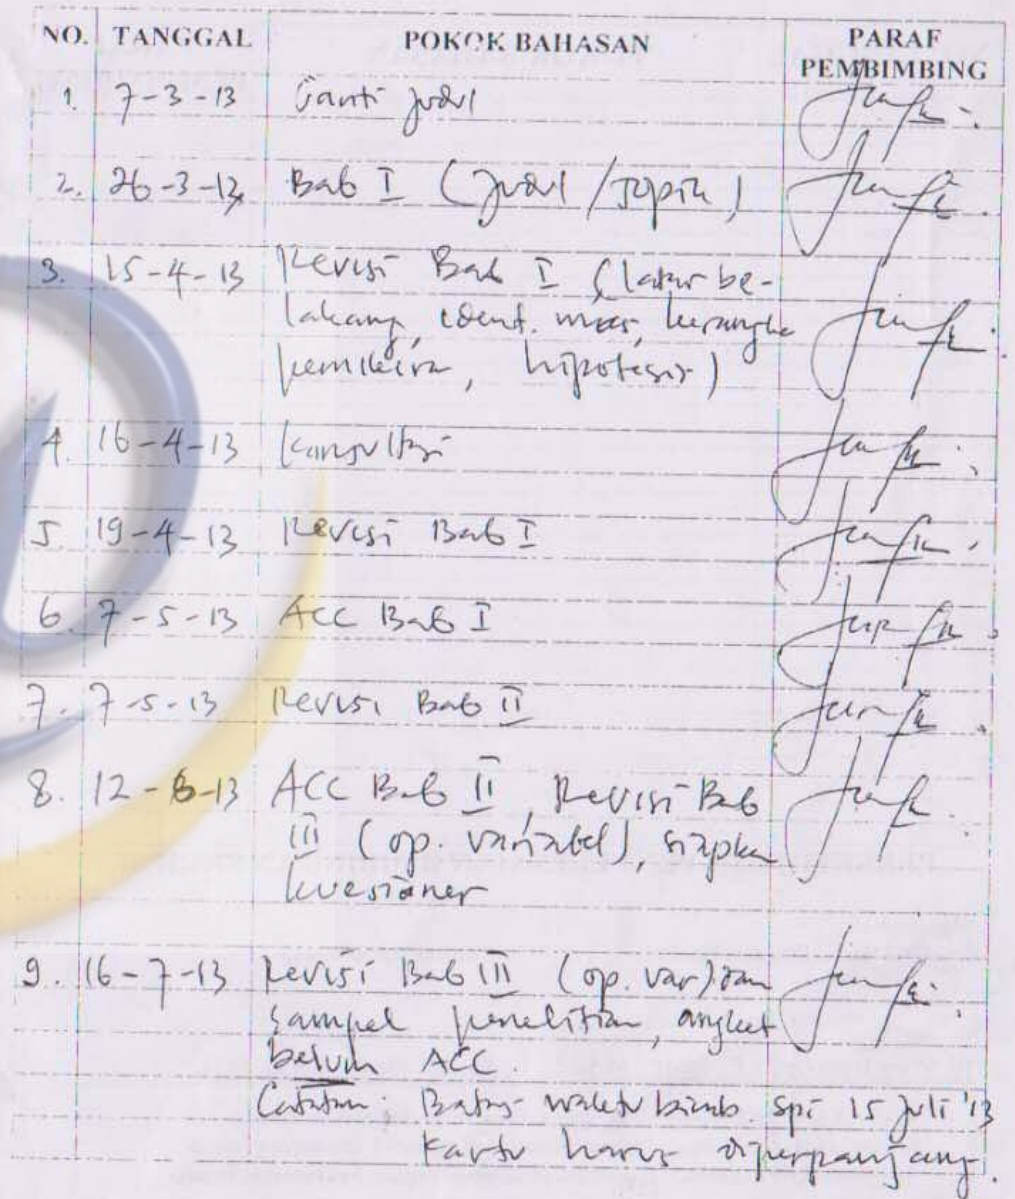 NO. TANGGAL POKOK BAHASAN PARAF PEMBIMBING
1. 7-3-13 Ganti judul
2. 26-3-13 Bab I (judul / topik)
3. 15-4-13 Revisi Bab I (latar be-
lakang, ident. mas, kerangka
pemikiran, hipotesis)
4. 16-4-13 Konsultasi
5. 19-4-13 Revisi Bab I
6. 7-5-13 ACC Bab I
7. 7-5-13 Revisi Bab II
8. 12-6-13 ACC Bab II, Revisi Bab
III (op. variabel), siapkan
kuesioner
9. 16-7-13 Revisi Bab III (op. var) dan
sampel penelitian, angket
belum ACC.
Catatan: Batas waktu bimb. spi 15 Juli '13
Kartu harus diperpanjang.